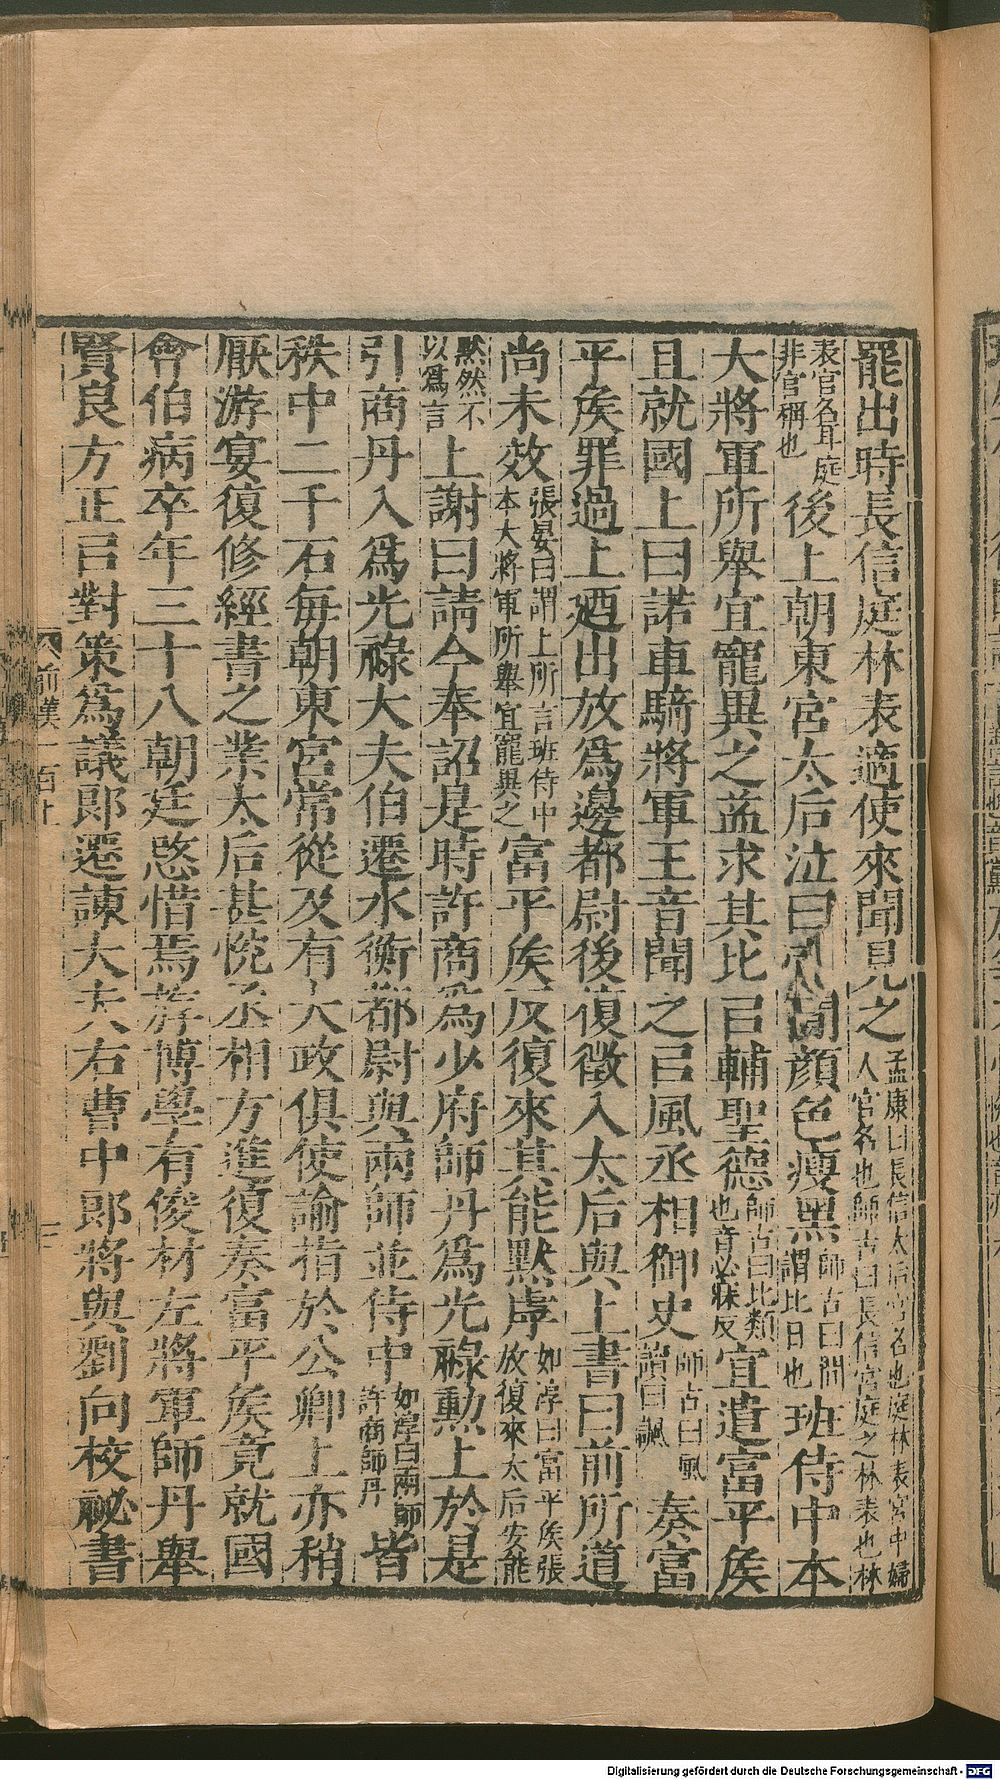 罷出時長信庭林表適使來聞見之孟康曰長信太后宮名也庭林表宮中婦人官名也師古曰長信宮庭之林表也林
表官名耳庭非官稱也後上朝東宮太后泣曰間顏色瘦黑師古曰間謂比日也班侍中本
大將軍所舉宜寵異之益求其比㠯輔聖德師古曰比類也音必寐反宜遣富平矦
且就國上曰諾車騎將軍王音聞之㠯風丞相御史師古曰風讀曰諷奏富
平矦罪過上廼出放爲邊都尉後復徵入太后與上書曰前所道
尚未效張晏曰謂上所言班侍中本大將軍所舉宜寵異之富平矦反復來其能默虖如淳曰富平矦張放復來太后安能
默然不以爲言上謝曰請今奉詔是時許商爲少府師丹爲光祿勳上於是
引商丹入爲光祿大夫伯遷水衡都尉與兩師並侍中如淳曰兩師許商師丹皆
秩中二千石每朝東宮常從及有大政俱使諭指於公卿上亦稍
厭游宴復修經書之業太后甚悅丞相方進復奏富平矦竟就國
會伯病卒年三十八朝廷愍惜焉斿博學有俊材左將軍師丹舉
賢良方正㠯對策爲議郎遷諫大夫右曹中郎將與劉向校祕書
前漢一百上
Digitalisierung gefördert durch die Deutsche Forschungsgemeinschaft - DFG